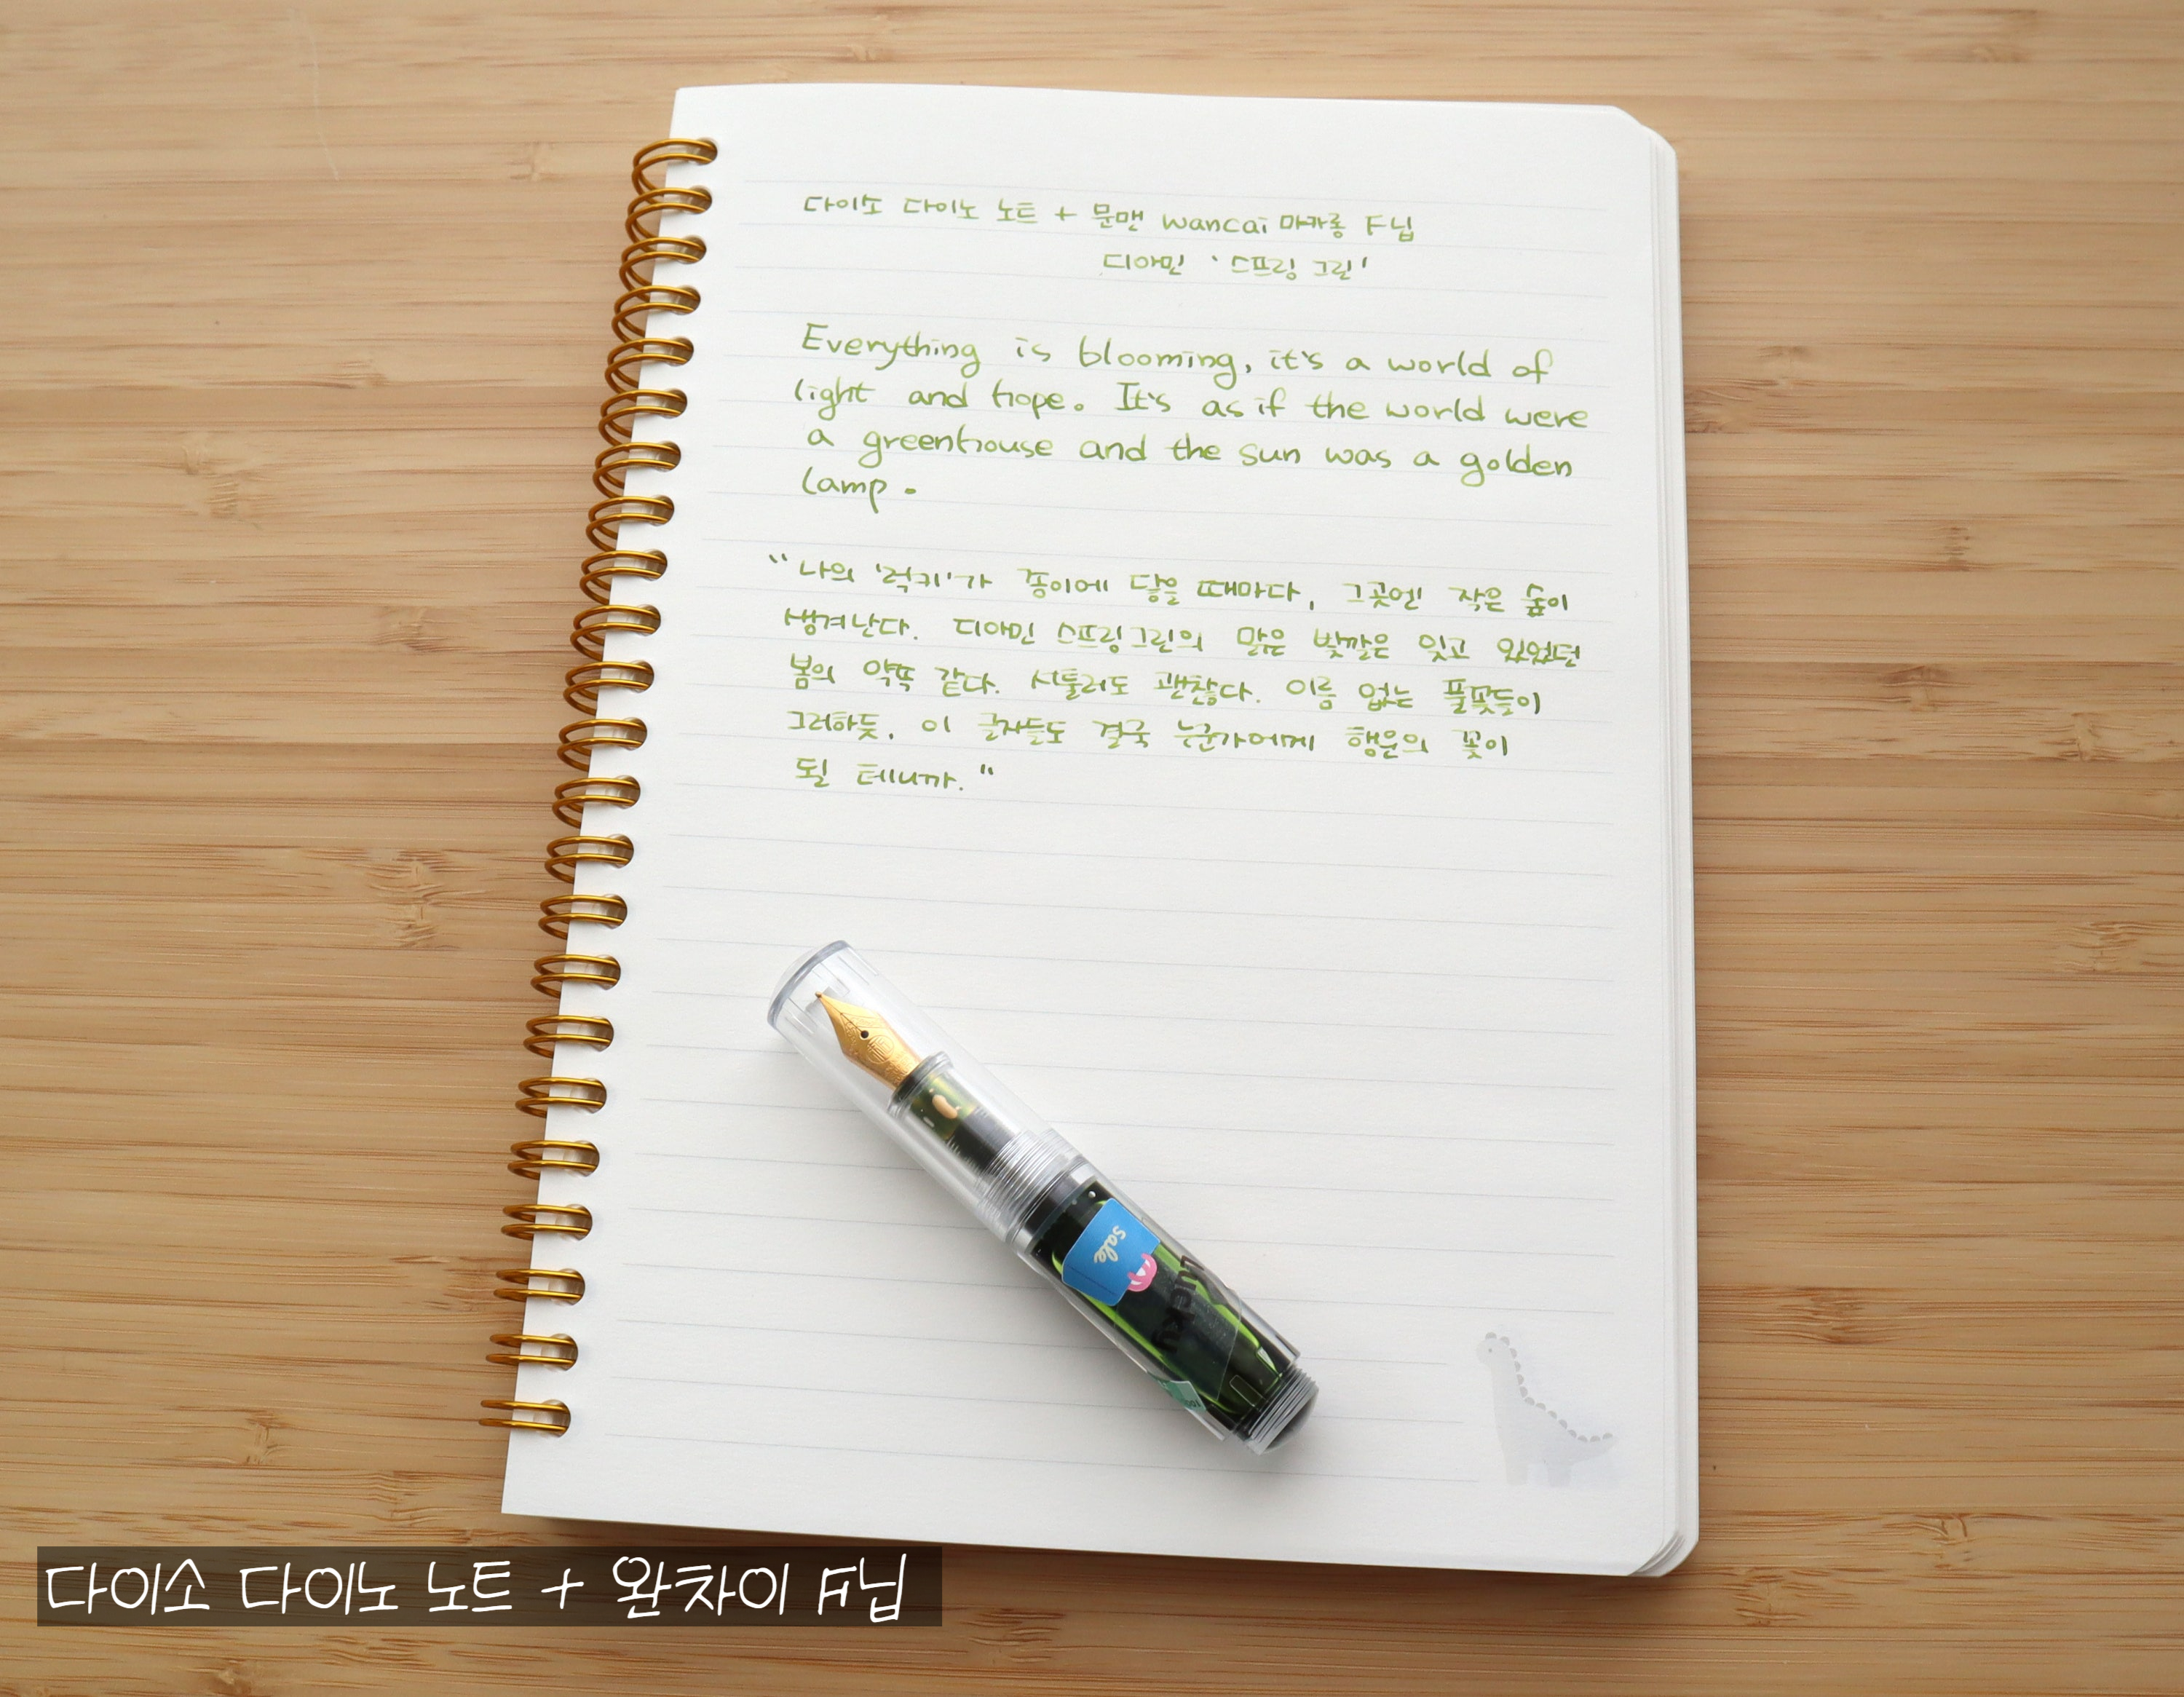 다이소 다이노 노트 + 문맨 wancai 마카롱 F닙
디아민 '스프링 그린'
Everything is blooming, it's a world of
light and hope. It's as if the world were
a greenhouse and the sun was a golden
lamp.
"나의 '럭키'가 종이에 닿을 때마다, 그곳엔 작은 숲이
생겨난다. 디아민 스프링그린의 맑은 빛깔은 잊고 있었던
봄의 약속 같다. 서툴러도 괜찮다. 이름 없는 풀꽃들이
그러하듯, 이 글자들도 결국 누군가에게 행운의 꽃이
될 테니까."
Sale
다이소 다이노 노트 + 완차이 F닙